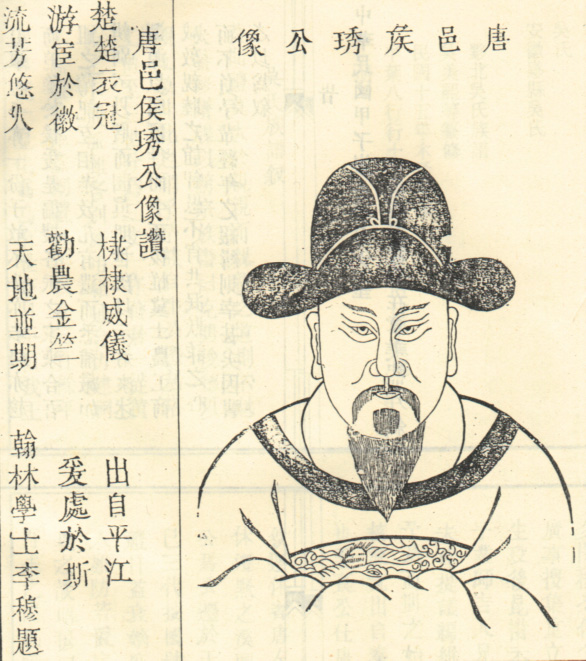 唐邑矦琇公像
唐邑侯琇公像讚
楚楚衣冠 棣棣威儀 出自平江
游宦於徽 勸農金竺 爰處於斯
流芳悠久 天地並期 翰林學士李穆題